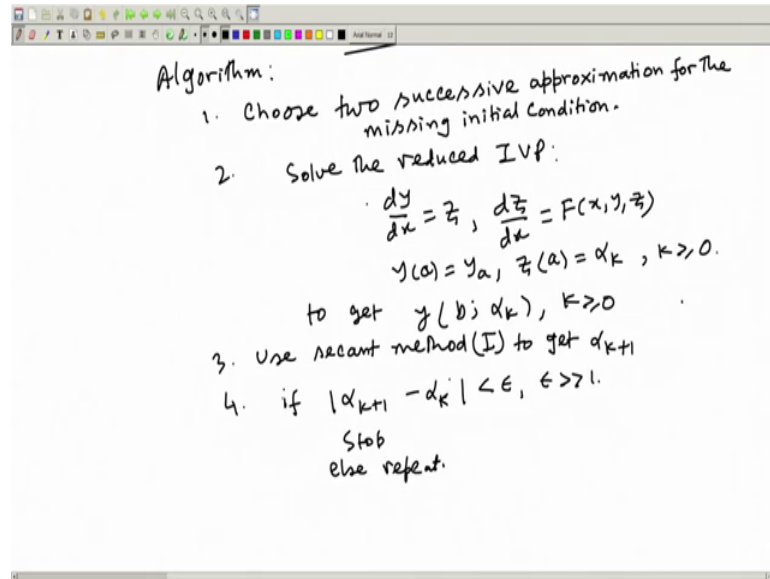 Arial Normal 12
Algorithm:
1. Choose two successive approximation for the
missing initial condition.
2. Solve the reduced IVP:
dy/dx = z, dz/dx = F(x, y, z)
y(a) = yₐ, z(a) = αₖ, k ≥ 0.
to get y(b; αₖ), k ≥ 0
3. Use secant method (I) to get αₖ₊₁
4. if |αₖ₊₁ - αₖ| < ϵ, ϵ >> 1.
Stop
else repeat.